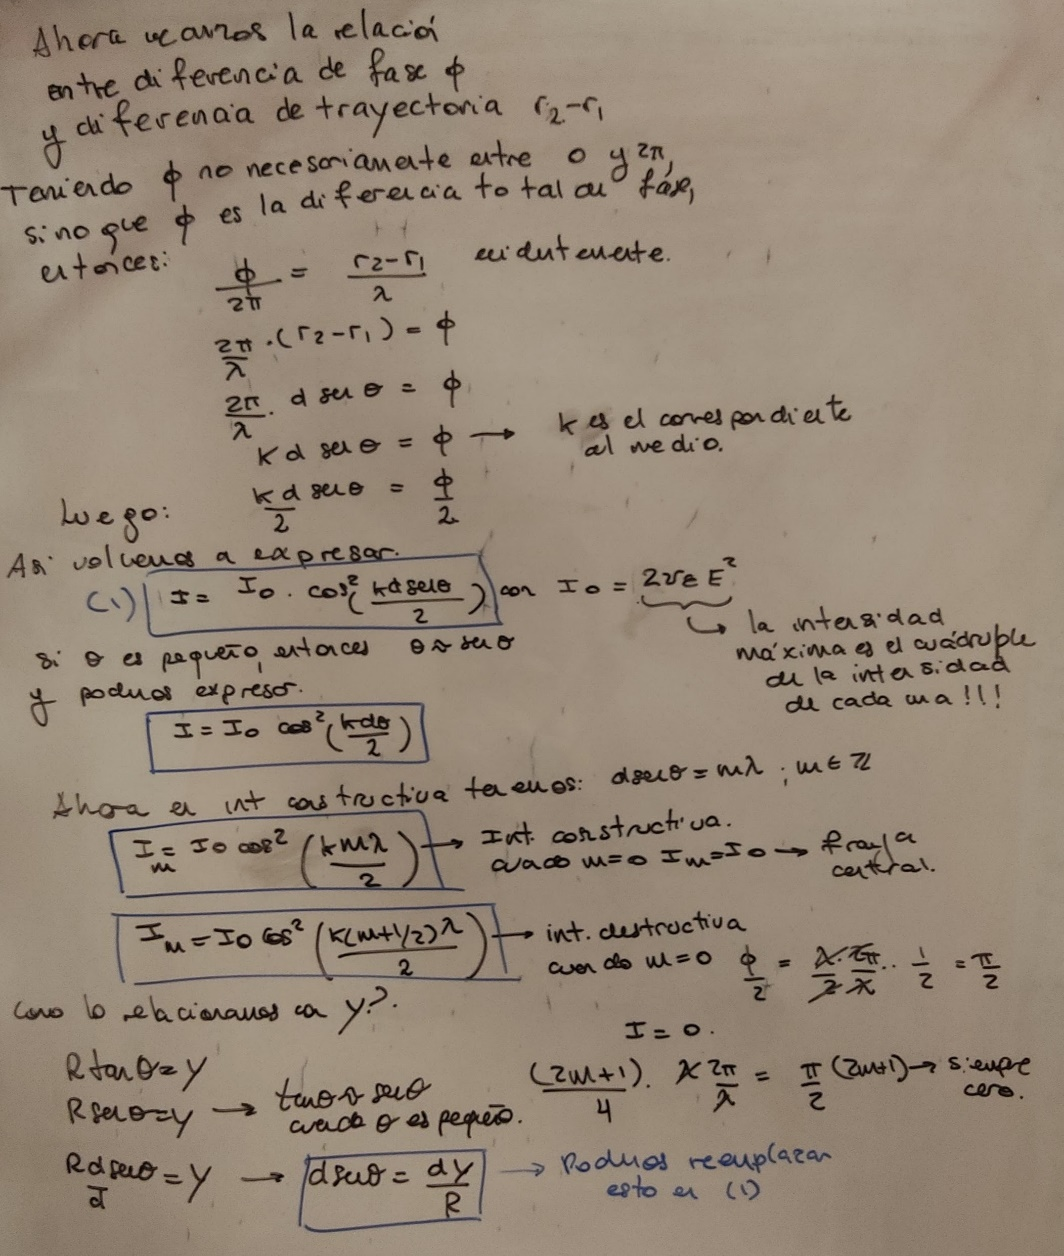 Ahora veamos la relación
entre diferencia de fase ϕ
y diferencia de trayectoria r₂-r₁
Teniendo ϕ no necesariamente entre 0 y 2π,
sino que ϕ es la diferencia total de fase,
entonces:
ϕ/2π = (r₂-r₁)/λ evidentemente.
2π/λ · (r₂-r₁) = ϕ
2π/λ · d sen θ = ϕ
K d sen θ = ϕ → k es el correspondiente
al medio.
Luego: kd senθ/2 = ϕ/2
Así volvemos a expresar.
(1) I = I₀ . cos²(kd senθ/2) con I₀ = 2vεE²
↳ la intensidad
máxima es el cuádruple
de la intensidad
de cada una!!!
si θ es pequeño, entonces θ≈senθ
y podemos expresar.
I = I₀ cos²(kdθ/2)
Ahora en int constructiva tenemos: dsenθ = mλ ; m∈ℤ
Iₘ = I₀ cos² (kmλ/2) → Int. constructiva.
cuando m=0 Iₘ=I₀ → franja
central.
Iₘ = I₀ cos² (k(m+1/2)λ/2) → int. destructiva
cuando m=0 ϕ/2 = λ·2π/2λ · 1/2 = π/2
I = 0.
(2m+1)/4 . λ 2π/λ = π/2 (2m+1) → siempre
cero.
Como lo relacionamos con y?.
R tanθ = y
R senθ = y → tanθ ≈ senθ
cuando θ es pequeño.
Rd senθ/d = y → dsenθ = dy/R → Podemos reemplazar
esto en (1)